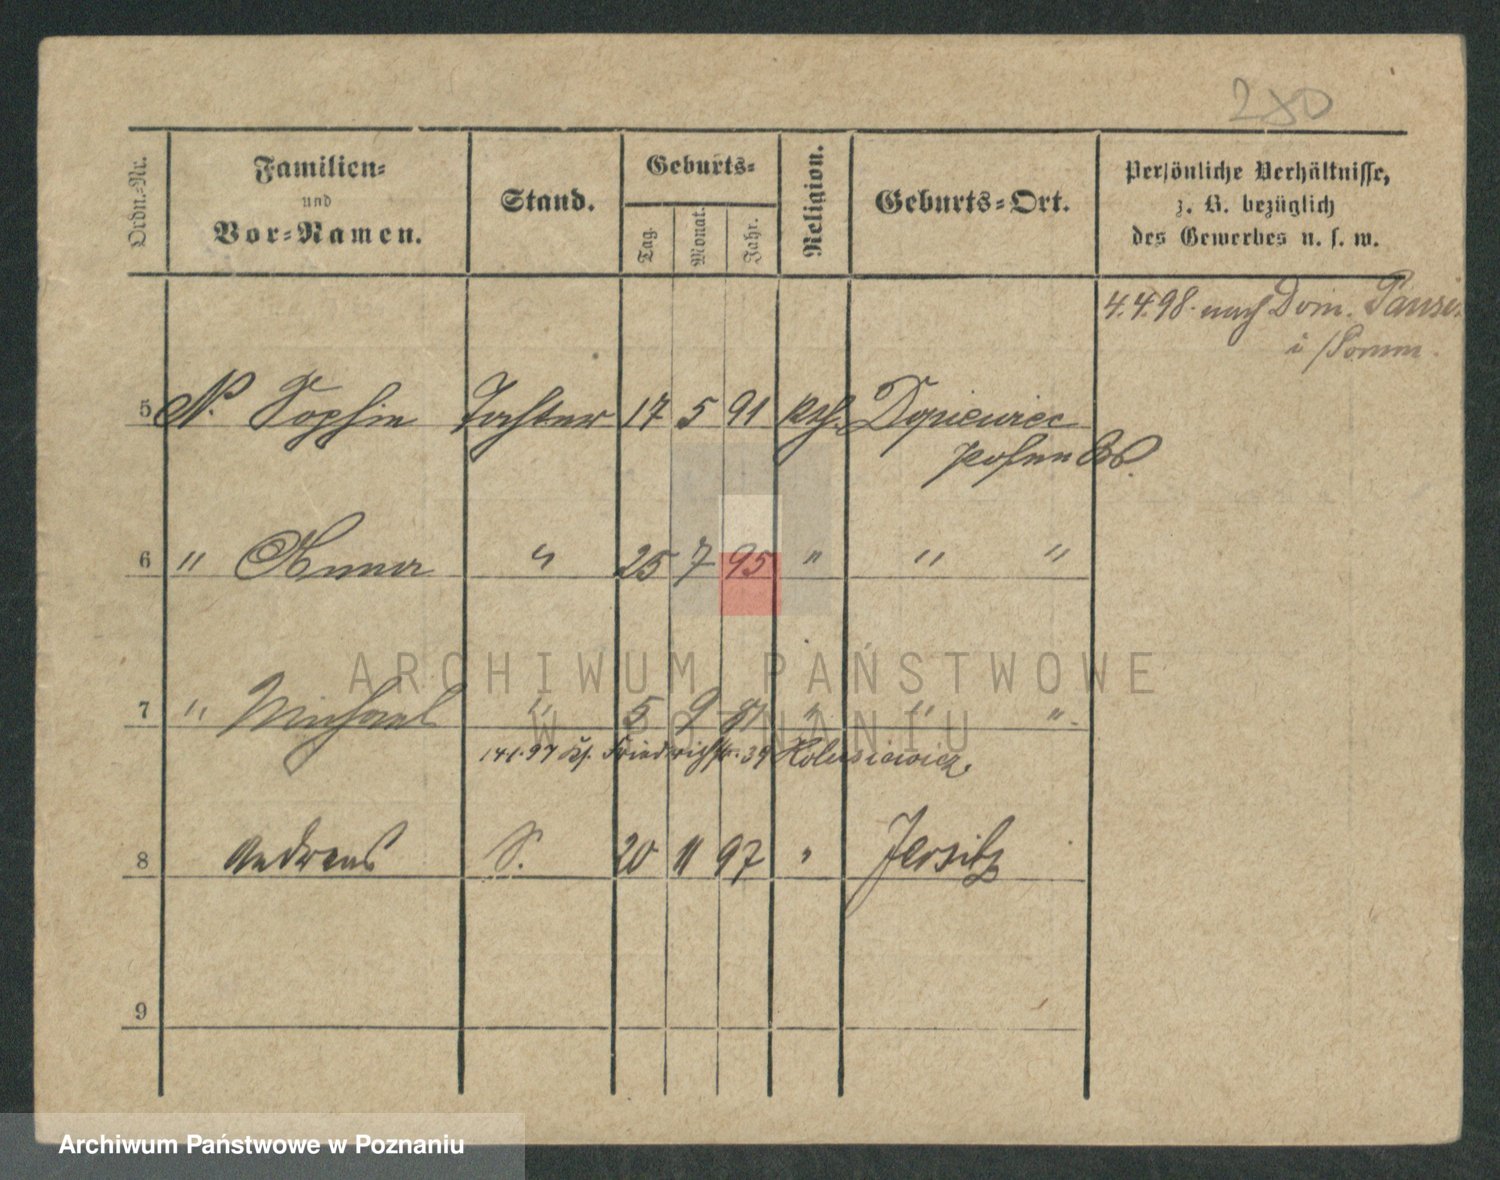 280
Ordn.-Nr.
Familien-
und
Vor-Namen.
Stand.
Geburts-
Tag.
Monat.
Jahr.
Religion.
Geburts-Ort.
Persönliche Verhältnisse,
z. B. bezüglich
des Gewerbes u. s. w.
4.4.98. nach Dom.
i/Pomm.
5 N. Sophie Tochter 17 5 91 kth.
Posen
6 " Anna " 25 7 95 " " "
7 " Michael " 5 9 " " "
Friedrichstr. 39
8 Andreas S. 20 11 97 " Jersitz
9
ARCHIWUM PAŃSTWOWE
W POZNANIU
Archiwum Państwowe w Poznaniu